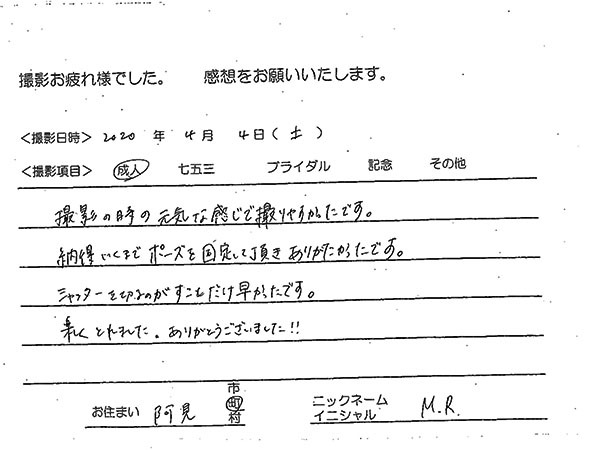 撮影お疲れ様でした。 感想をお願いいたします。
<撮影日時> 2020 年 4月 4日(土)
<撮影項目> 成人 七五三 ブライダル 記念 その他
撮影の時の元気な感じで撮りやすかったです。
納得いくまでポーズを固定して頂きありがたかったです。
シャッターを切るのがすこしだけ早かったです。
楽しくとれました。ありがとうございました!!
お住まい 阿見 市町村
ニックネーム イニシャル M.R.